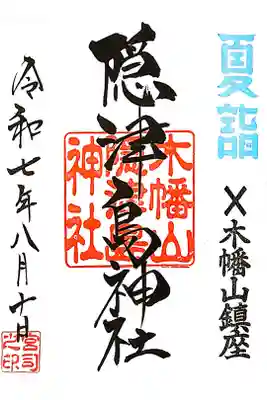 夏詣
〆木幡山鎮座
隠津島神社
木幡山
隠津島
神社
令和七年八月十日
宮司
之印